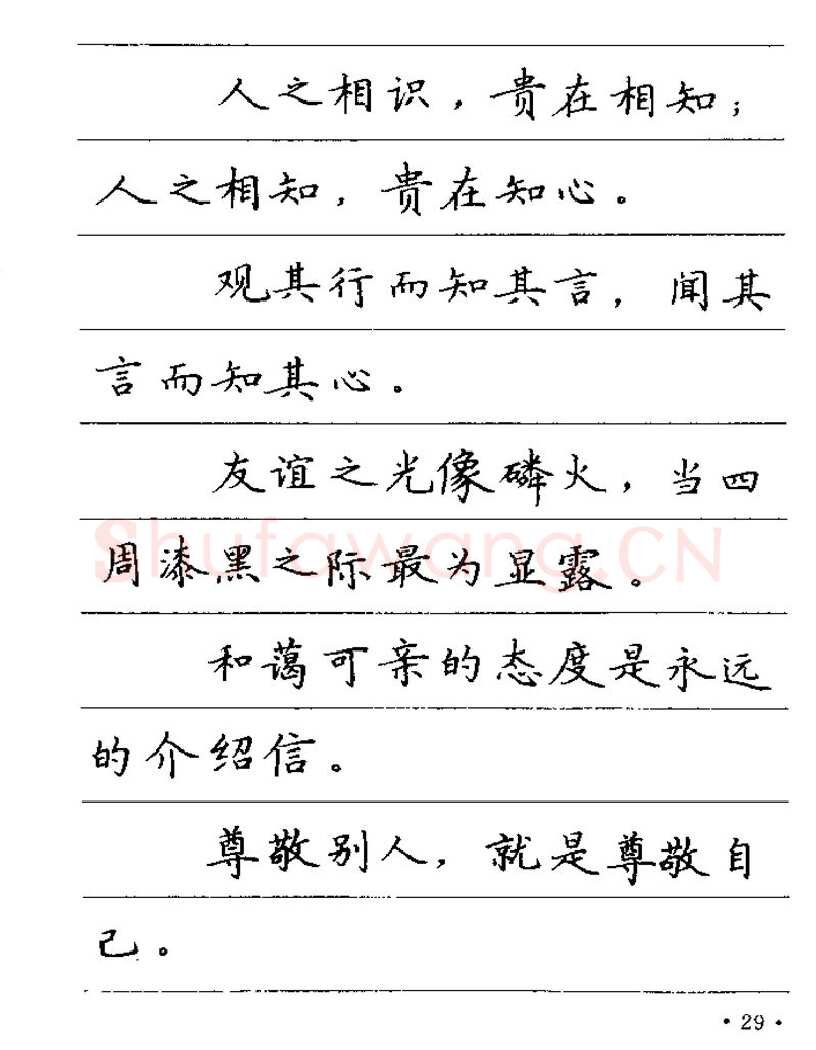 人之相识，贵在相知；
人之相知，贵在知心。
观其行而知其言，闻其
言而知其心。
友谊之光像磷火，当四
周漆黑之际最为显露。
Shufawang.CN
和蔼可亲的态度是永远
的介绍信。
尊敬别人，就是尊敬自
己。
·29·